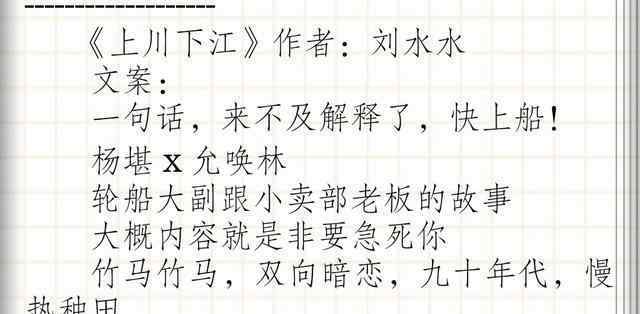 《上川下江》作者：刘水水
文案：
一句话，来不及解释了，快上船！
杨堪x允唤林
轮船大副跟小卖部老板的故事
大概内容就是非要急死你
竹马竹马，双向暗恋，九十年代，慢
热种田